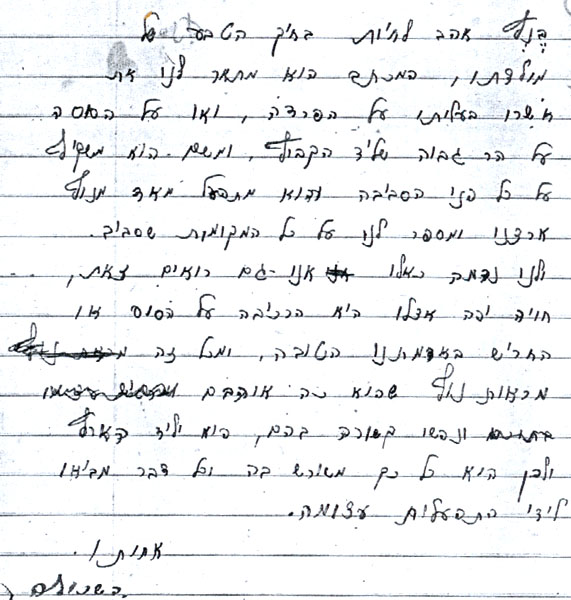 בֶּנְץ אהב לחיות בחיק הטבע של
מולדתו, המכתב הוא מתאר לנו את
אשרו בעלותו על הפרדה, ואו על הסוסה
על הר גבוה שליד הקבוץ, ומשם הוא משקיף
על כל פני הסביבה והוא מתפעל מאד מנוף
ארצנו ומספר לנו על כל המקומות שסביב.
ולנו נדמה כאלו אנו גם רואים זאת,
חויה יפה אצלו היא הרכיבה על הסוס או
החריש באדמתנו הטובה, ומכל זה
מראות נוף שהוא כה אוהבם
ונפשו קשורה בהם, הוא יליד הארץ
ולכן הוא כל כך משורש בה וכל דבר מביאו
לידי התפעלות עצומה.
אחותו.